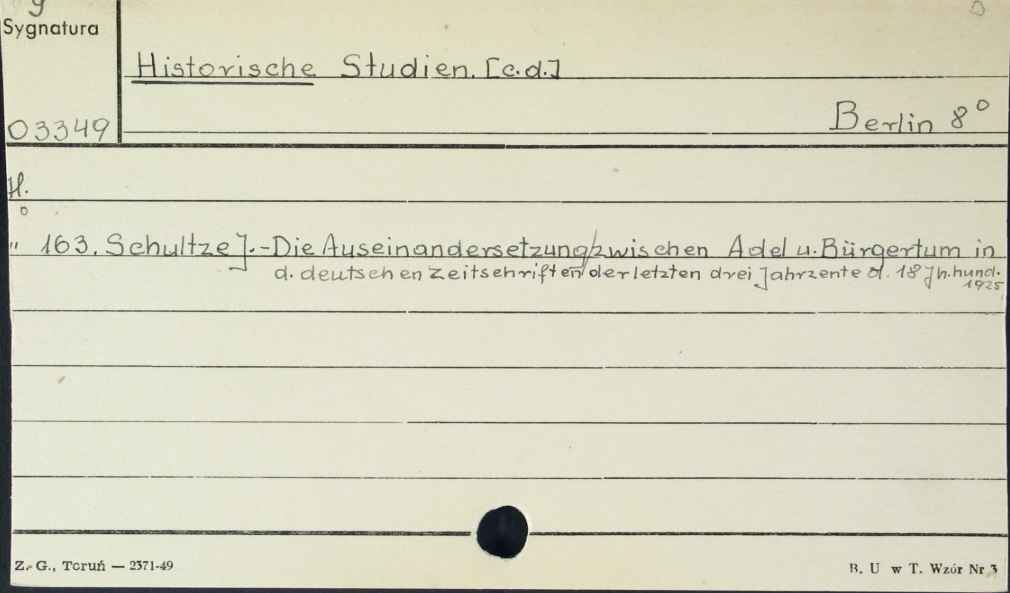 g
Sygnatura
Historische Studien. [c.d.]
03349
Berlin 8°
H.
o
" 163. Schultze J.-Die Auseinandersetzung/zwischen Adel u. Bürgertum in
d. deutschen Zeitsehriften der letzten drei Jahrzente d. 18 Jh.hund.
1925
Z. G., Toruń — 2371-49
B. U w T. Wzór Nr 3